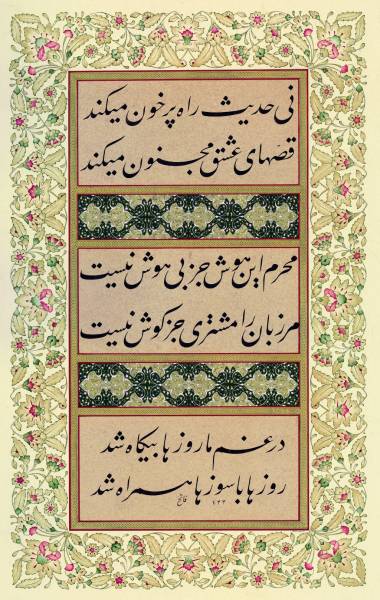 نی حدیث راه پر خون میکند
قصهای عشق مجنون میکند
محرم این هوش جز بی هوش نیست
مر زبان را مشتری جز گوش نیست
در غم ما روزها بیگاه شد
روزها با سوزها همراه شد